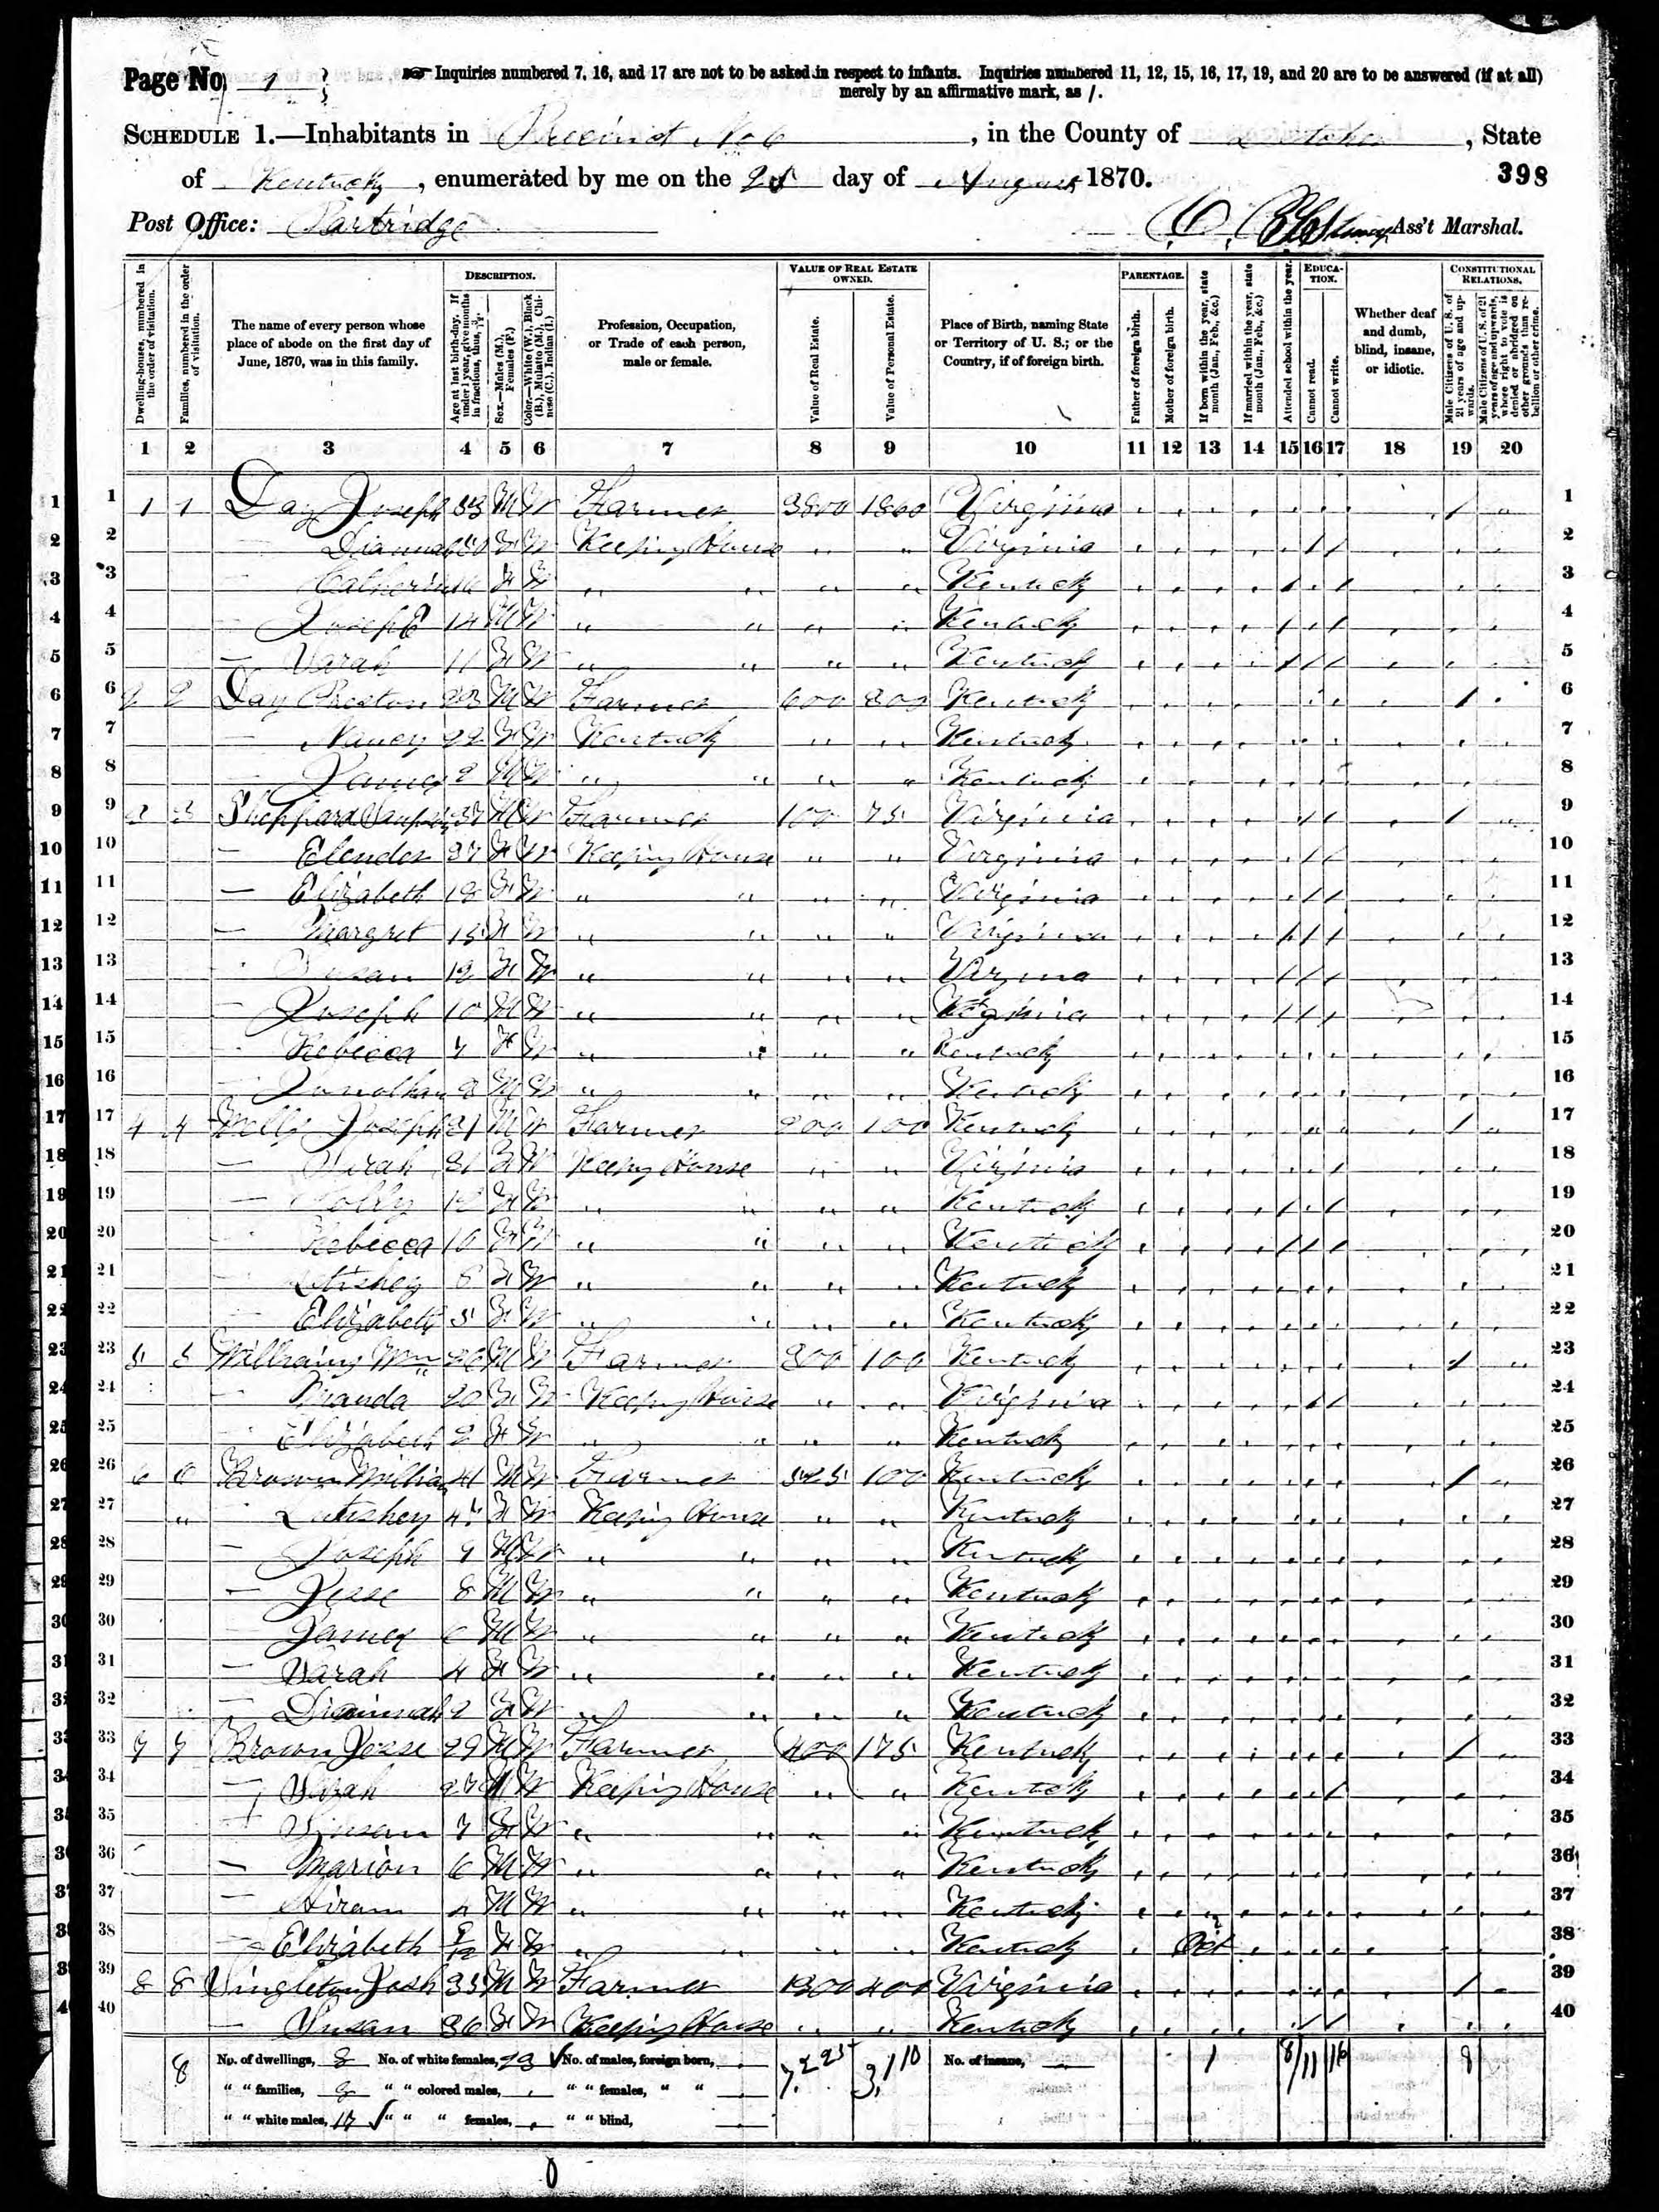 Page No. 1
Inquiries numbered 7, 16, and 17 are not to be asked in respect to infants. Inquiries numbered 11, 12, 15, 16, 17, 19, and 20 are to be answered (if at all)
merely by an affirmative mark, as /.
SCHEDULE 1.—Inhabitants in Precinct No 6, in the County of Letcher, State
of Kentucky, enumerated by me on the day of August 1870.
398
Post Office: Partridge
Ass't Marshal.
DESCRIPTION.
VALUE OF REAL ESTATE OWNED.
PARENTAGE.
EDUCATION.
CONSTITUTIONAL RELATIONS.
Dwelling-houses, numbered in the order of visitation.
Families, numbered in the order of visitation.
The name of every person whose place of abode on the first day of June, 1870, was in this family.
Age at last birth-day. If under 1 year, give months in fractions, thus, 3/12.
Sex.—Males (M.), Females (F.)
Color.—White (W.), Black (B.), Mulatto (M.), Chinese (C.), Indian (I.)
Profession, Occupation, or Trade of each person, male or female.
Value of Real Estate.
Value of Personal Estate.
Place of Birth, naming State or Territory of U. S.; or the Country, if of foreign birth.
Father of foreign birth.
Mother of foreign birth.
If born within the year, state month (Jan., Feb., &c.)
If married within the year, state month (Jan., Feb., &c.)
Attended school within the year.
Cannot read.
Cannot write.
Whether deaf and dumb, blind, insane, or idiotic.
Male Citizens of U. S. of 21 years of age and upwards.
Male Citizens of U. S. of 21 years of age and upwards, where right to vote is denied or abridged on other grounds than rebellion or other crime.
1 2 3 4 5 6 7 8 9 10 11 12 13 14 15 16 17 18 19 20
1 1 1 Day Joseph 53 M W Farmer 1 Virginia /
2 — F W Keeping House " " Virginia / /
3 — 16 F W " " " " Kentucky / /
4 — Joseph 14 M W " " " " Kentucky / / /
5 — Sarah 11 F W " " " " Kentucky / / /
6 2 2 Day Preston 23 M W Farmer 600 Kentucky /
7 — Nancy 22 F W Kentucky " " Kentucky
8 — James 2 M W " " " " Kentucky
9 3 3 Sheppard 37 M W Farmer 100 75 Virginia / / /
10 — Elender 37 F W Keeping House " " Virginia / /
11 — Elizabeth 18 F W " " " " Virginia / /
12 — Margret 15 F W " " " " Virginia / / /
13 Susan 12 F W " " " " / / /
14 — Joseph 10 M W " " " " / / /
15 Rebecca 7 F W " " " " Kentucky
16 Jonathan M W " " " " Kentucky
17 4 4 Joseph 31 M W Farmer 100 Kentucky /
18 — Sarah 31 F W Keeping House " " Virginia
19 — Polly 12 F W " " " " Kentucky / / /
20 Rebecca 10 F W " " " " Kentucky / / /
21 — 8 F W " " " " Kentucky
22 — Elizabeth 5 F W " " " " Kentucky
23 5 5 Williams Wm 26 M W Farmer 100 Kentucky /
24 — 20 F W Keeping House " " Virginia / /
25 — Elizabeth 2 F W " " " " Kentucky
26 6 6 Brown William 41 M W Farmer 525 100 Kentucky /
27 " F W Keeping House " " Kentucky
28 — Joseph M W " " " " Kentucky
29 — Jesse 8 M W " " " " Kentucky
30 — James 6 M W " " " " Kentucky
31 — Sarah 4 F W " " " " Kentucky
32 — 2 F W " " " " Kentucky
33 7 7 Brown Jesse 29 M W Farmer 400 175 Kentucky /
34 — Sarah 27 W Keeping House " " Kentucky /
35 Susan 7 F W " " " " Kentucky
36 — Marion 6 M W " " " " Kentucky
37 — Hiram 4 M W " " " " Kentucky
38 — Elizabeth F W " " " " Kentucky Oct
39 8 8 Singleton Josh 35 M W Farmer 1300 400 Virginia /
40 — Susan 36 F W Keeping House " " Kentucky / /
8 No. of dwellings, 8 No. of white females, 23 No. of males, foreign born, — 3,110 No. of insane, — 1 8/11 16 8
" " families, 8 " " colored males, " " females, " " —
" " white males, 17 " " " females, " " blind, —